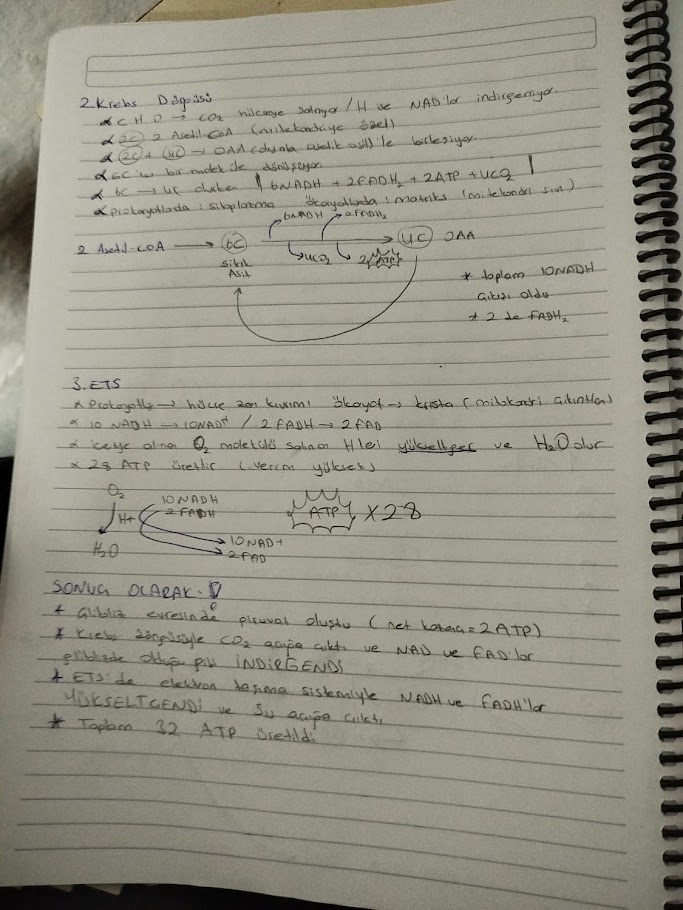 2. Krebs Döngüsü
CHO → CO₂ hücreye salınıyor / H ve NAD'lar indirgeniyor.
2C 2 Asetil-CoA (mitekondriye özel)
2C + 4C → OAA ile birleşiyor.
6C'lu bir molekül dönüşüyor
6C → 4C olurken | 6NADH + 2FADH₂ + 2ATP + 4CO₂ |
prokaryotlada: sitoplazma ökaryotlada: matriks (mitekondri sıvı)
6NADH 2FADH₂
2 Asetil-COA → 6C 4C OAA
4CO₂ 2 ATP
Sitrik
Asit
* toplam 10NADH
çıkışı oldu
* 2 de FADH₂
3. ETS
Prokaryotta → hücre zarı kıvrımı ökaryot → krista (mitokondri çıkıntıları)
10 NADH → 10NAD⁺ / 2 FADH → 2 FAD
içeriye alınan O₂ molekülü salınan H'leri yükseltger ve H₂O olur
28 ATP üretilir (verim yüksek)
O₂ 10NADH
H+ 2 FADH ATP x28
H₂O 10NAD+
2 FAD
SONUÇ OLARAK
* Glikoliz evresinde piruvat oluştu (net kazanç = 2ATP)
* Krebs döngüsüyle CO₂ açığa çıktı ve NAD ve FAD'lar
glikolizde olduğu gibi İNDİRGENDİ
* ETS'de elektron taşıma sistemiyle NADH ve FADH'lar
YÜKSELTGENDİ ve Su açığa çıktı
* Toplam 32 ATP üretildi